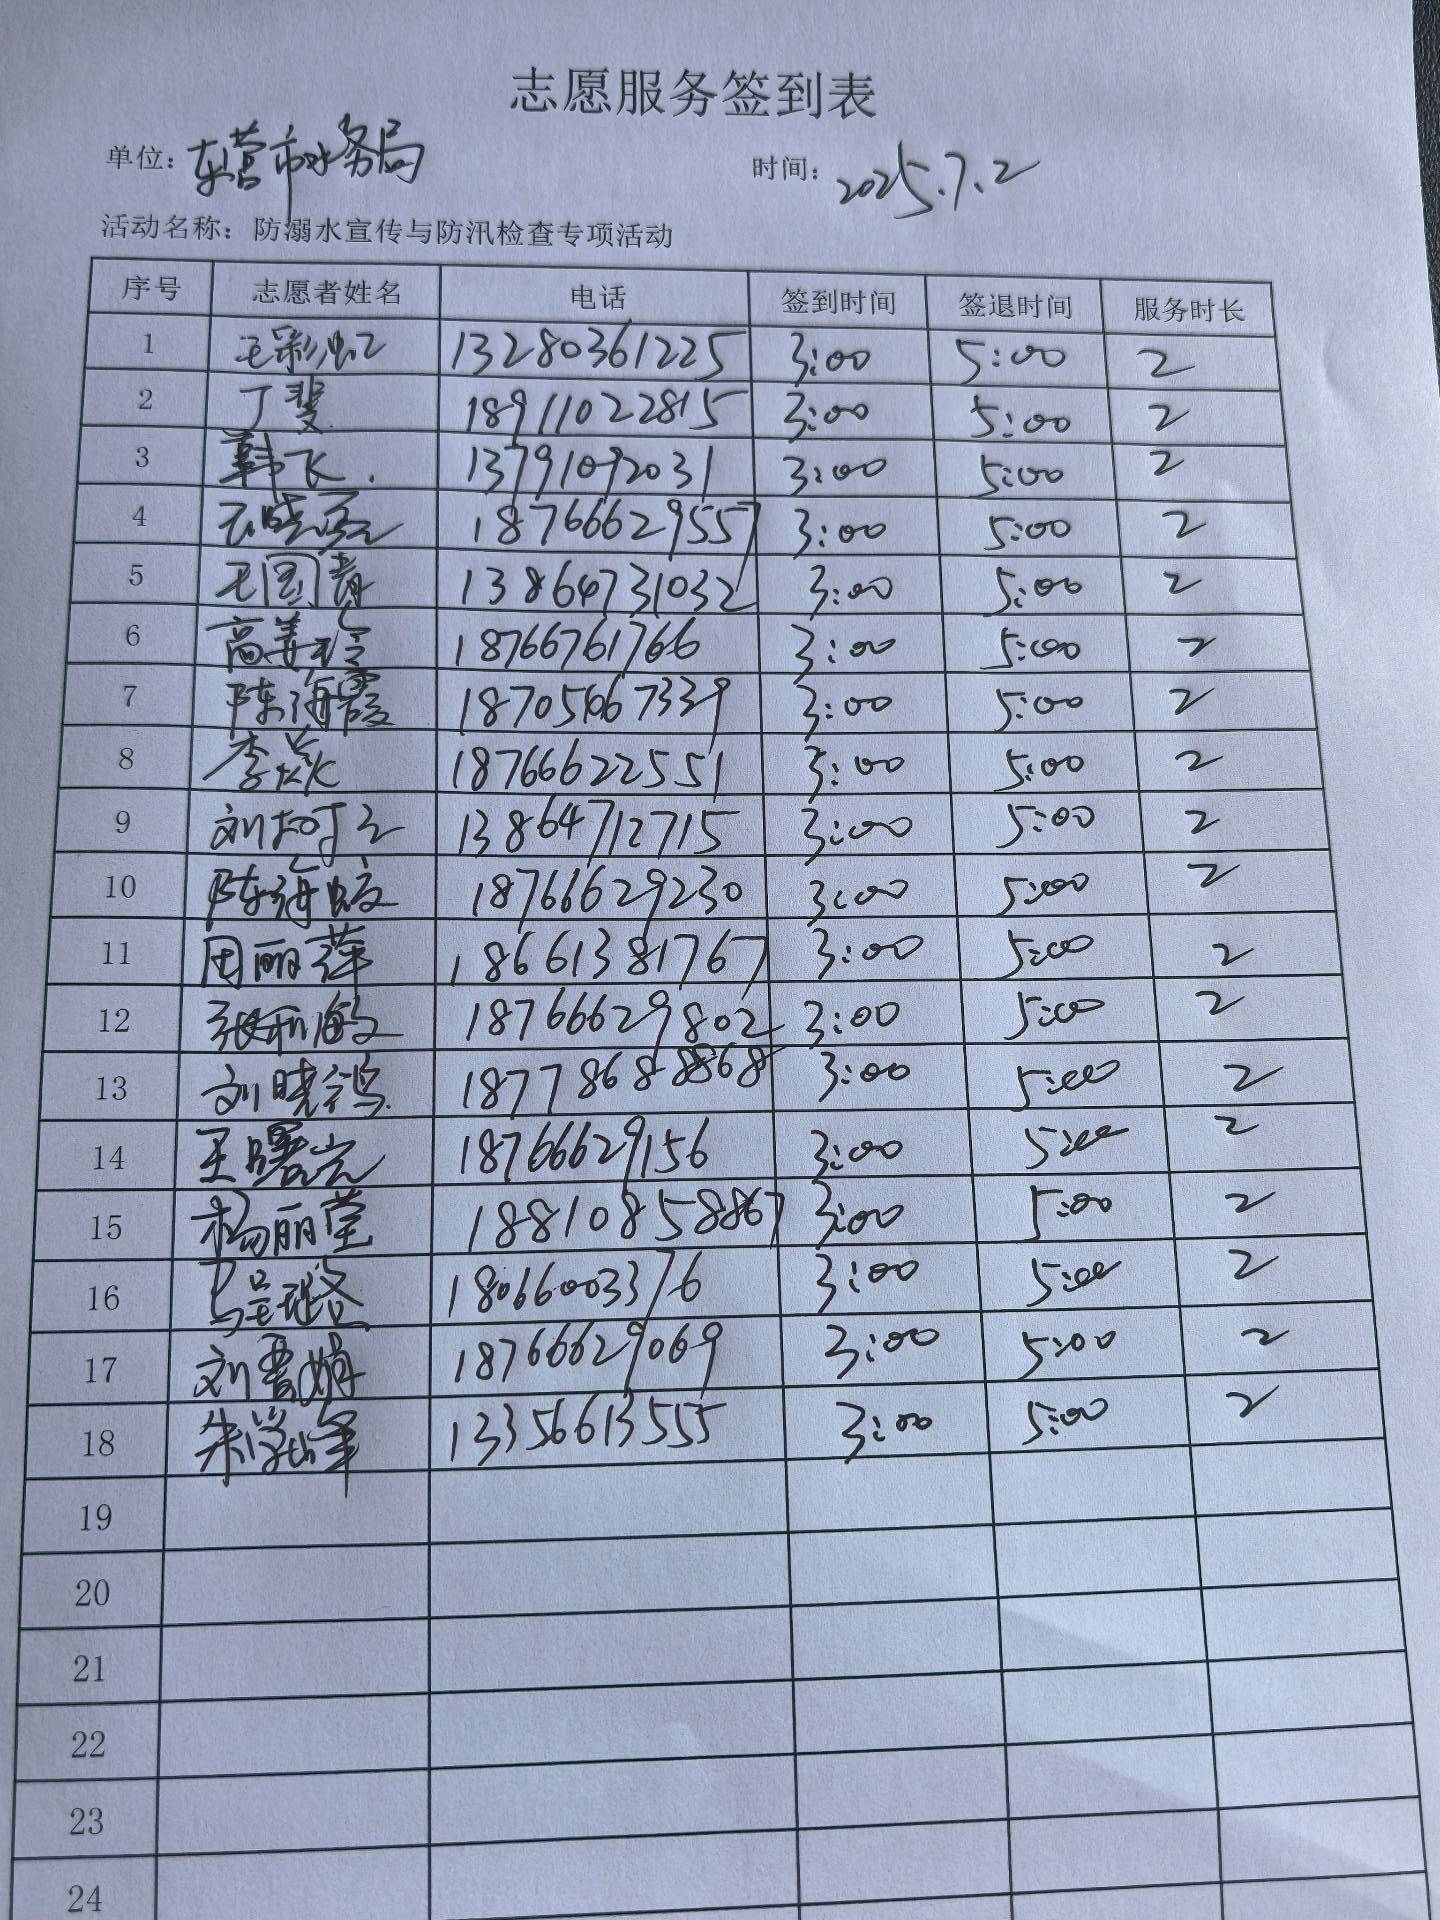 志愿服务签到表
单位：东营市水务局 时间：2025.7.2
活动名称：防溺水宣传与防汛检查专项活动
序号 志愿者姓名 电话 签到时间 签退时间 服务时长
1 王彩虹 13280361225 3:00 5:00 2
2 丁斐 18911022815 3:00 5:00 2
3 韩飞 13791092031 3:00 5:00 2
4 18766629557 3:00 5:00 2
5 王国青 13864731032 3:00 5:00 2
6 高美玲 18766761766 3:00 5:00 2
7 陈海霞 18705667339 3:00 5:00 2
8 李焱 18766622551 3:00 5:00 2
9 刘 13864712715 3:00 5:00 2
10 陈海霞 18766629230 3:00 5:00 2
11 周丽萍 18661381767 3:00 5:00 2
12 张利敏 18766629802 3:00 5:00 2
13 刘晓鸽 18778688868 3:00 5:00 2
14 王曙光 18766629156 3:00 5:00 2
15 杨丽莹 18810858867 3:00 5:00 2
16 18066003376 3:00 5:00 2
17 刘晋娟 18766629069 3:00 5:00 2
18 朱学峰 13356613555 3:00 5:00 2
19
20
21
22
23
24